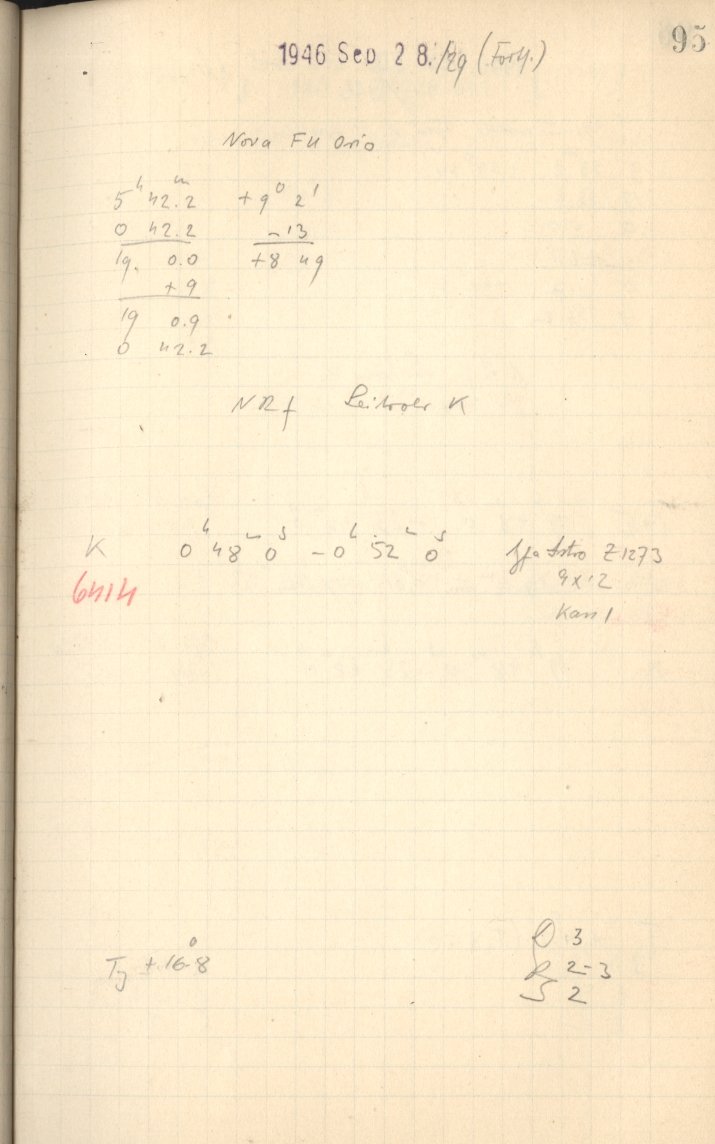 95
1946 Sep 28./29 (Forts.)
Nova FU Orio
5h 42.2m +9° 2'
0 42.2 -13
19. 0.0 +8 49
+9
19 0.9
0 42.2
NRf Leitrohr K
K 0h 48m 0s - 0h 52m 0s Agfa Astro Z1273
6414 9x12
Kass 1
Tz +16.8°
D 3
R 2-3
S 2